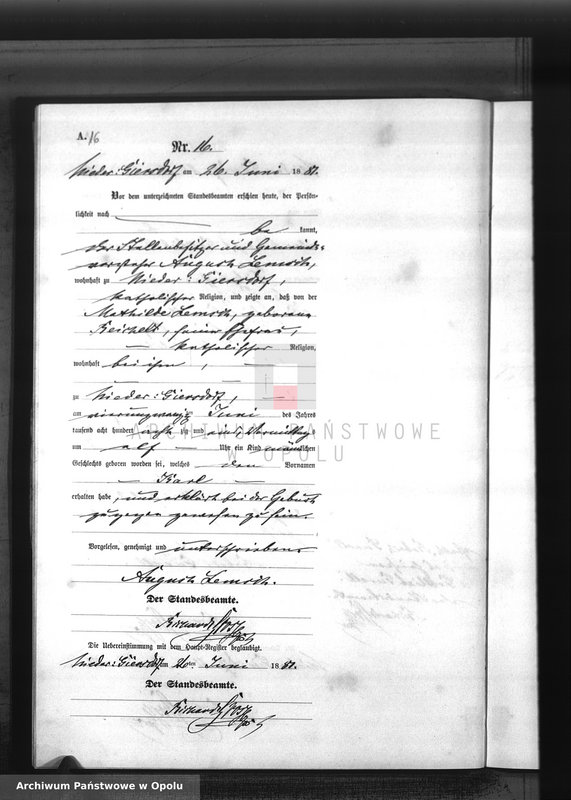 A. 16
Nr. 16.
Nieder: Giersdorf am 26. Juni 1881.
Vor dem unterzeichneten Standesbeamten erschien heute, der Persön-
lichkeit nach
be kannt,
der Stellenbesitzer und Gemeinde-
vorsteher August Lemrich,
wohnhaft zu Nieder: Giersdorf,
katholischer Religion, und zeigte an, daß von der
Mathilde Lemrich, geborenen
Reichelt, seiner Ehefrau,
katholischer Religion,
wohnhaft bei ihm,
zu Nieder: Giersdorf,
am vierundzwanzig Juni des Jahres
tausend acht hundert acht zig und Vormittags
um elf Uhr ein Kind männlichen
Geschlechts geboren worden sei, welches den Vornamen
Karl
erhalten habe, und erklärt bei der Geburt
zugegen gewesen zu sein.
Vorgelesen, genehmigt und unterschrieben
August Lemrich.
Der Standesbeamte.
Die Uebereinstimmung mit dem Haupt-Register beglaubigt.
Nieder: Giersdorf am 26ten Juni 1881.
Der Standesbeamte.
ARCHIWUM PAŃSTWOWE
W OPOLU
Archiwum Państwowe w Opolu